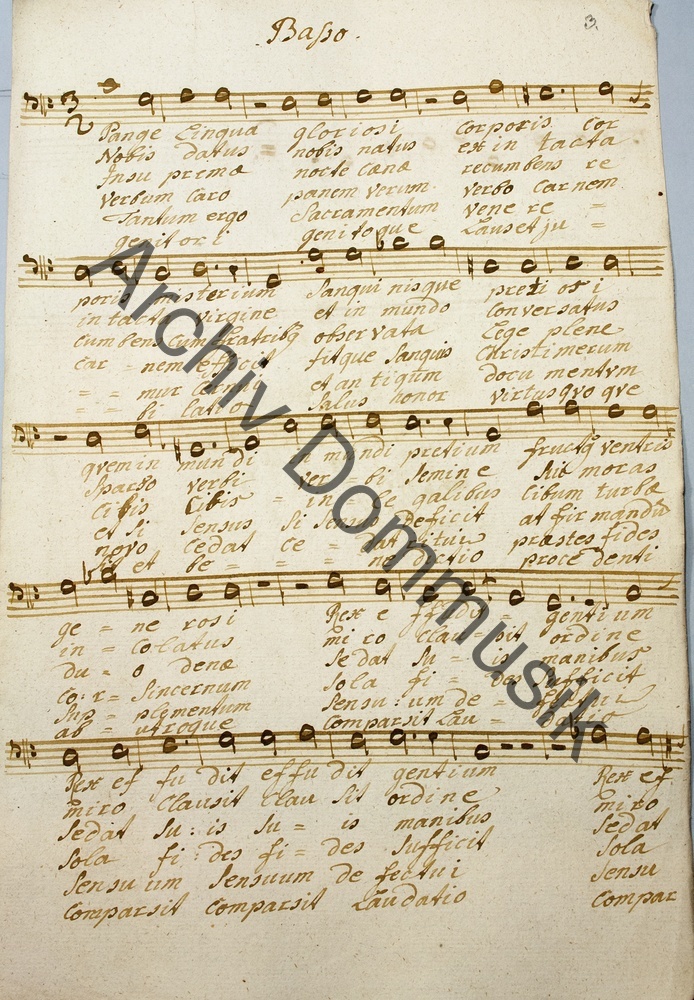 Basso.
3.
Pange Lingua gloriosi corporis cor
Nobis datus nobis natus ex in tacta
Insu premæ nocte cænæ recumbens re
verbum caro panem verum verbo carnem
Tantum ergo Sacramentum vene re =
genitori genitoque Laus et ju =
poris misterium Sanqui nisque preti osi
intacta virgine et in mundo conversatus
cumbens cum fratribq observata Lege plene
car = nem efficit fitque Sanquis Christi merum
= = mur cernui et an tiqum docu mentum
bi latio Salus honor virtus quo que
quem in mundi mundi pretium fructq ventris
Sparso verbi ver bi Semine Sui moras
Cibis Cibis = in = le galibus cibum turbæ
et Si Sensus Si Sensus deficit at fir mandu
novo cedat ce = dat ritui præstes fides
Sit et be = = = ne dictio proce denti
ge = ne rosi Rex e ffudit = gentium
in = colatus miro clau = sit ordine
du = o denæ Se dat Su = is manibus
co: r = Sincernum Sola fi = des Sufficit
Sup = plementum Sensu: um de =
ab = utroque comparsit Lau =
Rex ef fu dit effu dit gentium Rex ef
miro Clausit Clau Sit ordine miro
Sedat Su: is Su = is manibus Sedat
Sola fi: des fi = des Sufficit Sola
Sensu um Sensuum de fectui Sensu
comparsit comparsit Laudatio compar
Archiv Dommusik